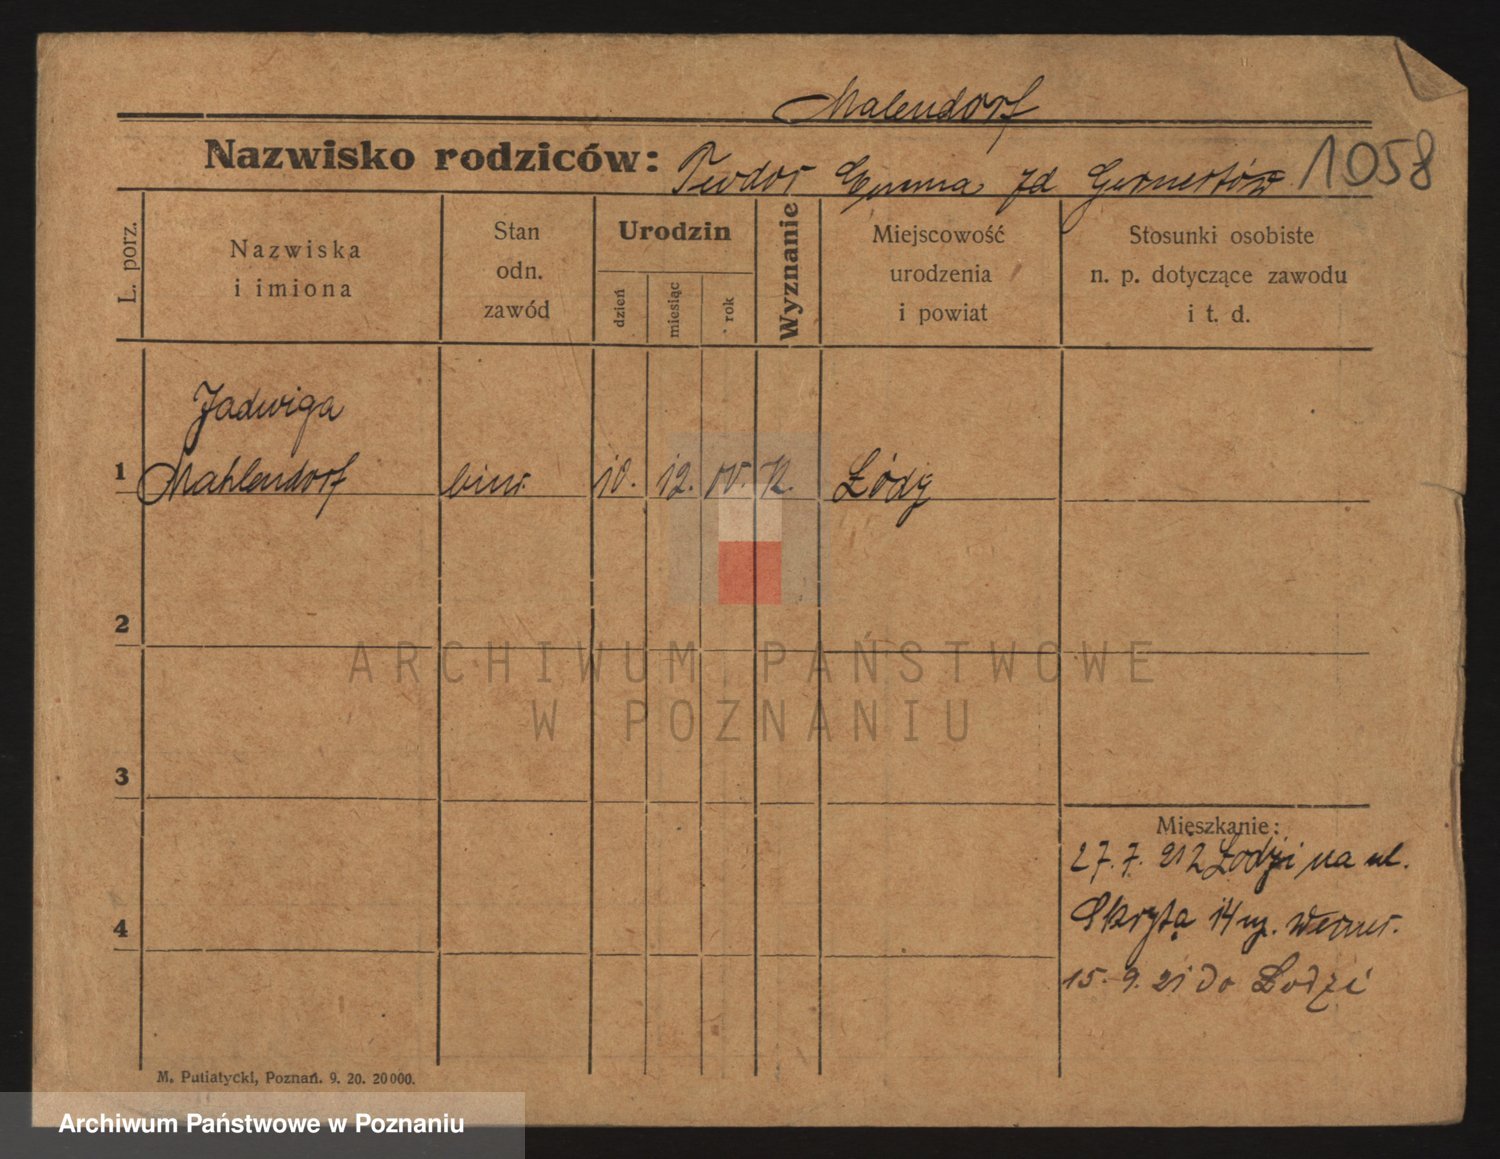 Malendorf
Nazwisko rodziców: Teodor Emma zd Gernertów 1058
L. porz.
Nazwiska
i imiona
Stan
odn.
zawód
Urodzin
dzień
miesiąc
rok
Wyznanie
Miejscowość
urodzenia
i powiat
Stosunki osobiste
n. p. dotyczące zawodu
i t. d.
Jadwiga
1 Mahlendorf biur. 10. 12. Łódź
2
3
4
Mieszkanie:
27. 7. 21 z Łodzi na ul.
Skryta 14 Werner.
15. 9. 21 do Łodzi
M. Putiatycki, Poznań. 9. 20. 20000.
ARCHIWUM PAŃSTWOWE
W POZNANIU
Archiwum Państwowe w Poznaniu